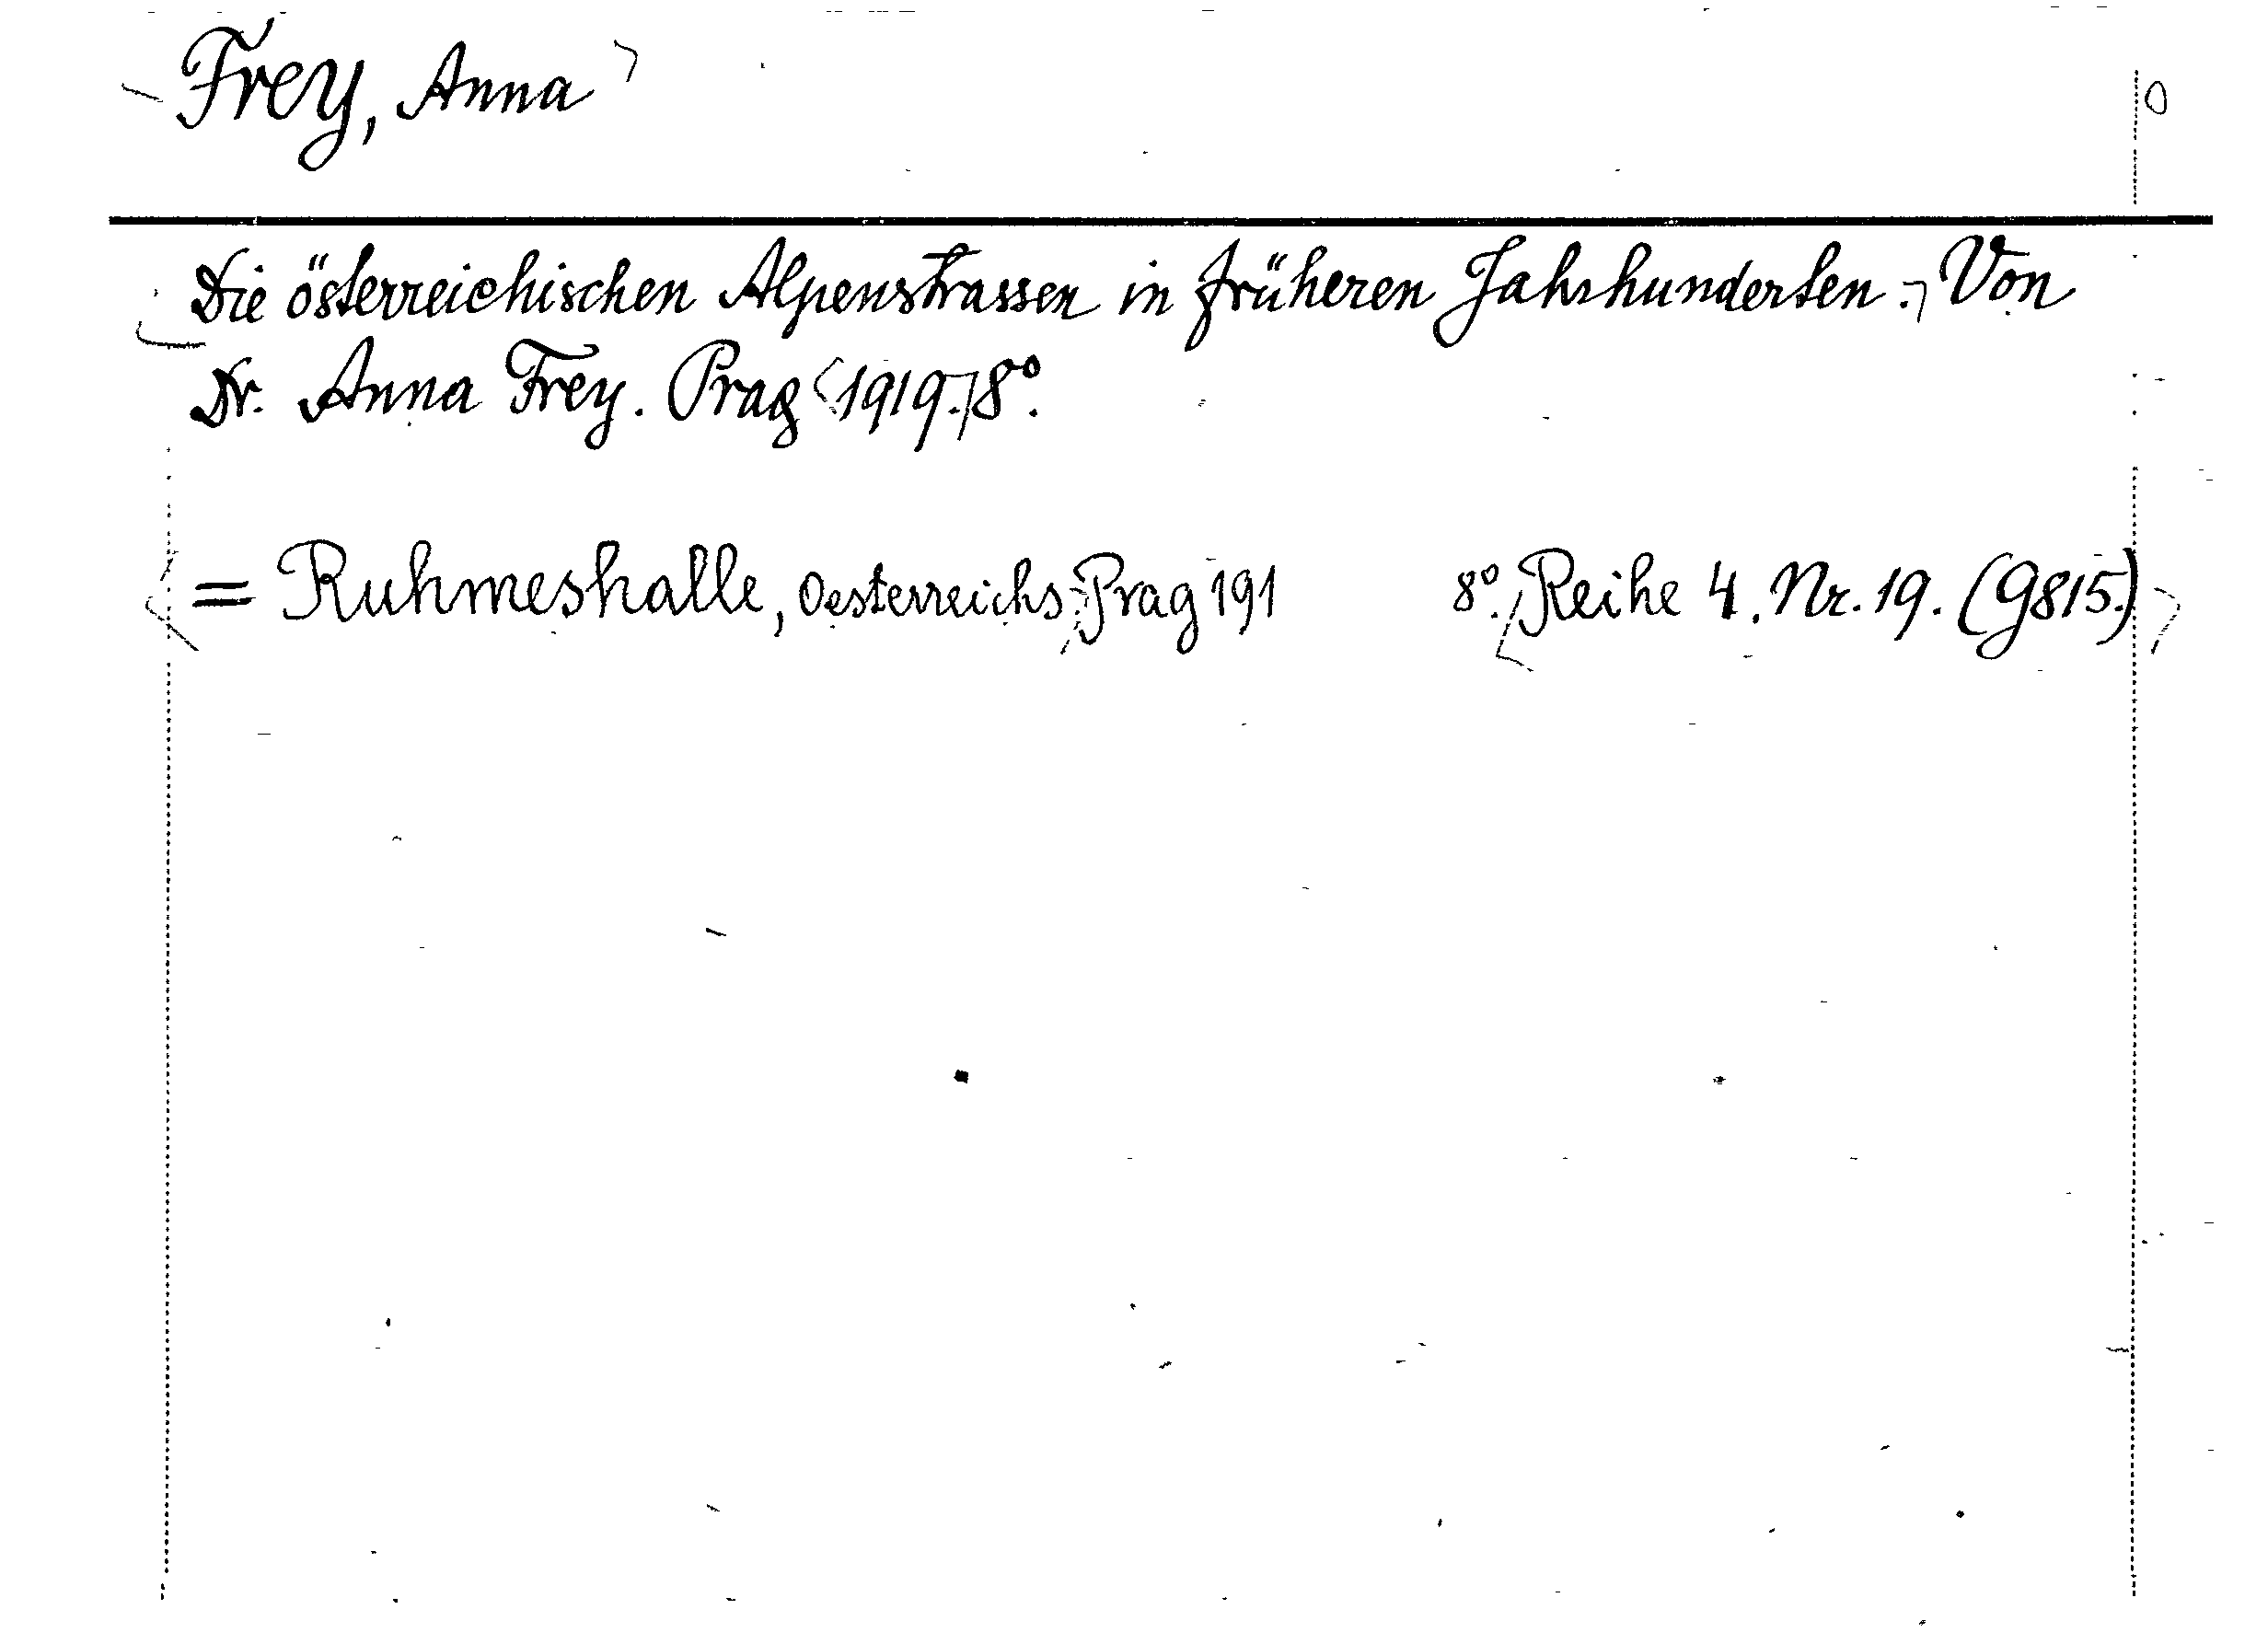 Frey, Anna 0
Die österreichischen Alpenstrassen in früheren Jahrhunderten. Von
Dr. Anna Frey. Prag 1919. 8°.
= Ruhmeshalle, Oesterreichs. Prag 191 8°. Reihe 4. Nr. 19. (9815.)